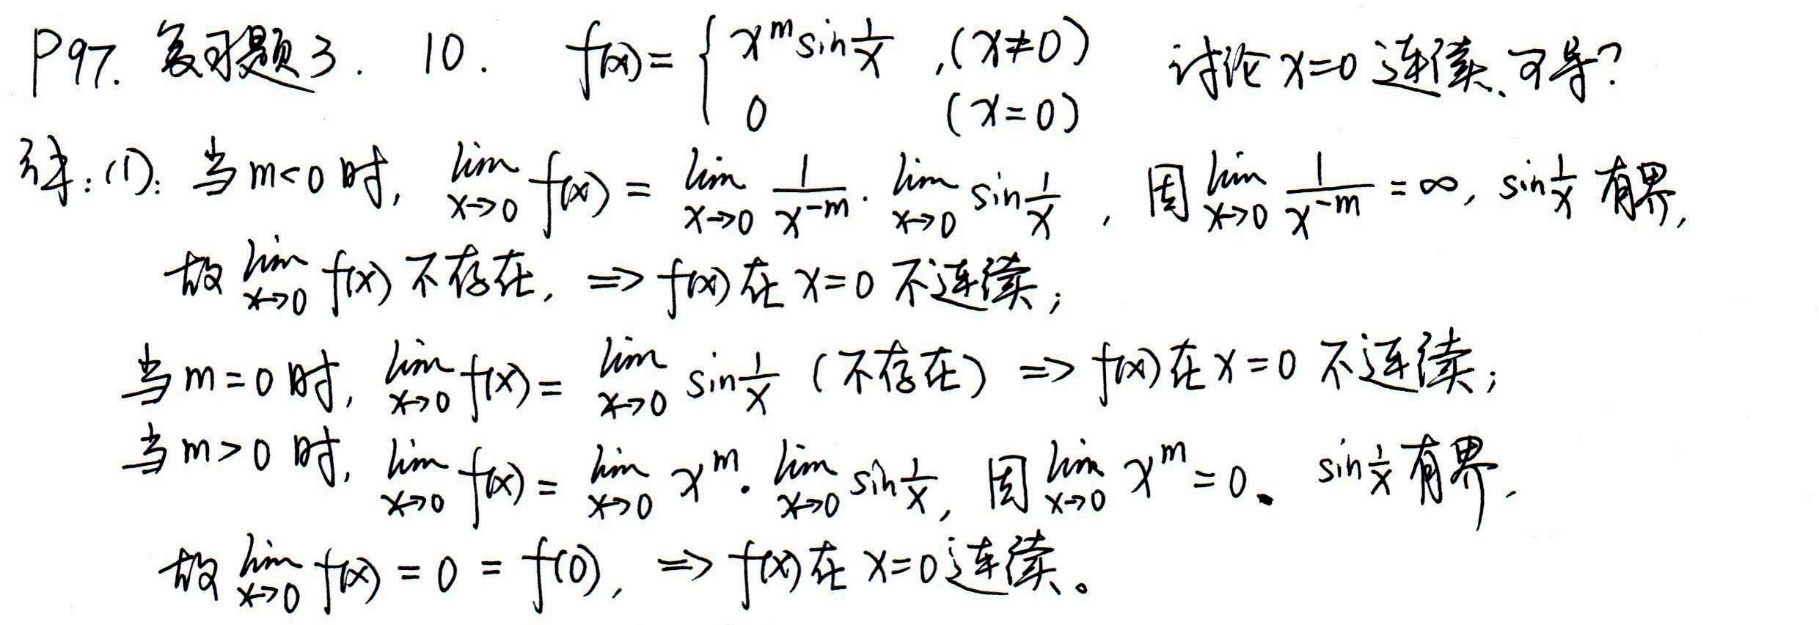 P97. 复习题3. 10. f(x)= { x^m sin 1/x , (x≠0) 0 (x=0) 讨论 x=0 连续、可导?
解:(1): 当 m<0 时, lim x→0 f(x) = lim x→0 1/x^-m · lim x→0 sin 1/x , 因 lim x→0 1/x^-m = ∞, sin 1/x 有界,
故 lim x→0 f(x) 不存在, ⇒ f(x) 在 x=0 不连续;
当 m=0 时, lim x→0 f(x) = lim x→0 sin 1/x (不存在) ⇒ f(x) 在 x=0 不连续;
当 m>0 时, lim x→0 f(x) = lim x→0 x^m · lim x→0 sin 1/x, 因 lim x→0 x^m = 0. sin 1/x 有界,
故 lim x→0 f(x) = 0 = f(0), ⇒ f(x) 在 x=0 连续。